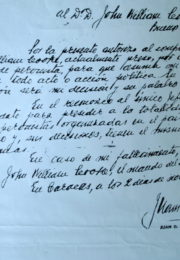 al D.D. John William Coo
Bueno
Por la presente autorizo al compa
illiam Cooke, actualmente preso por s
de peronista, para que asuma
todo acto o acción política. En
ión será mi decisión y su palabra
En él reconozco al único jefe
dato para presidir a la totalidad
peronistas organizadas en el país
y sus decisiones, tienen el mismo
mías.
En caso de mi fallecimiento,
John William Cooke, el mando del
En Caracas, a los 2 días de nov
JUAN D.